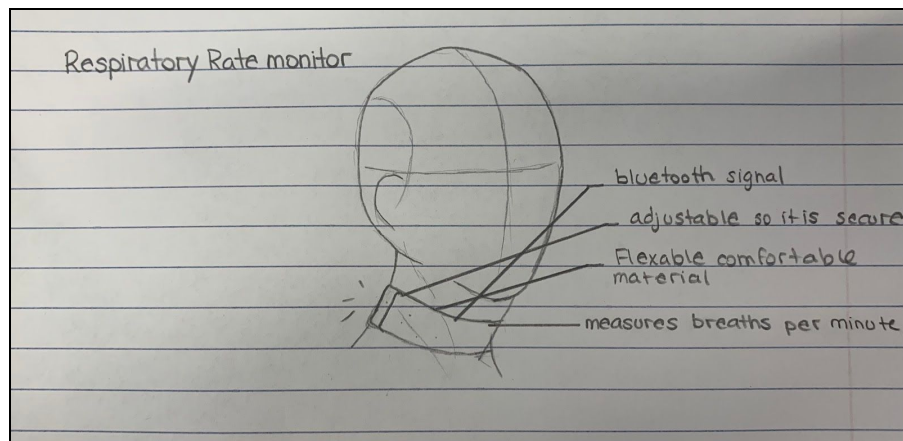 Respiratory Rate monitor
bluetooth signal
adjustable so it is secure
Flexable comfortable
material
measures breaths per minute